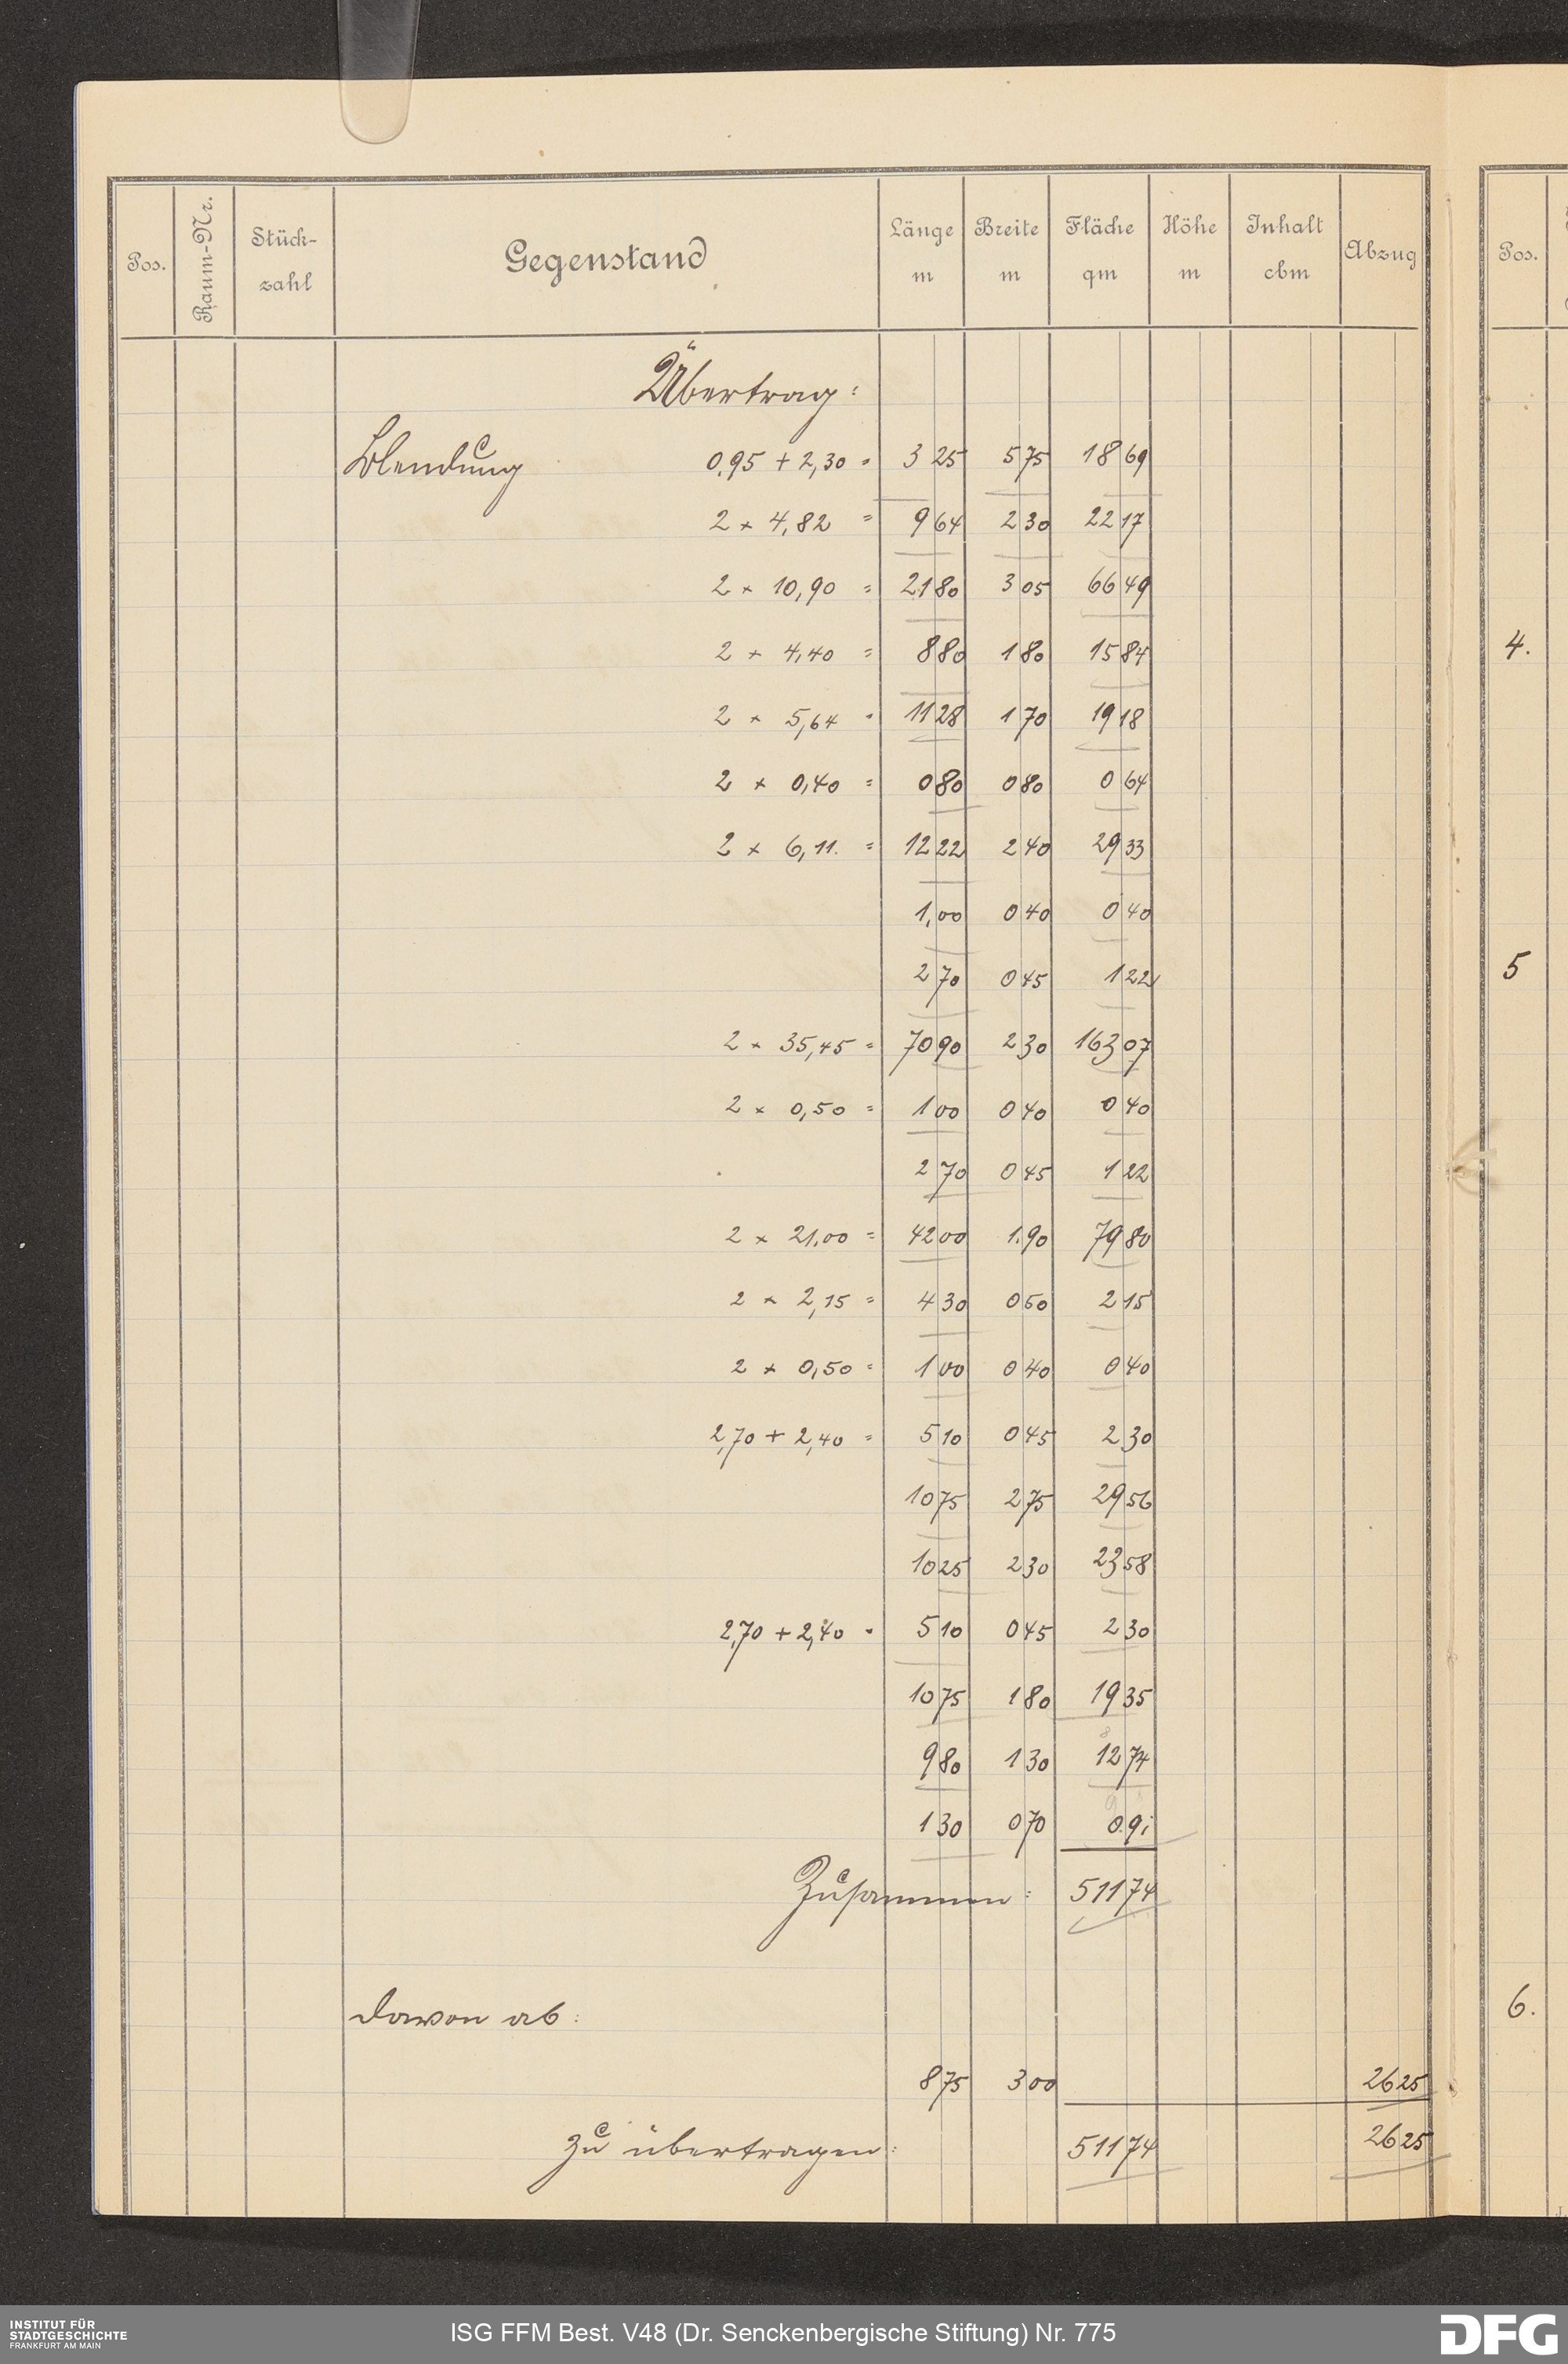 Pos. Raum-Nr. Stück-zahl Gegenstand Länge m Breite m Fläche qm Höhe m Inhalt cbm Abzug Pos.
Übertrag:
Blendung 0,95 + 2,30 = 3 25 5 75 18 69
2 × 4,82 = 9 64 2 30 22 17
2 × 10,90 = 21 80 3 05 66 49
2 × 4,40 = 8 80 1 80 15 84 4.
2 × 5,64 = 11 28 1 70 19 18
2 × 0,40 = 0 80 0 80 0 64
2 × 6,11. = 12 22 2 40 29 33
1,00 0 40 0 40
2 70 0 45 1 22 5
2 × 35,45 = 70 90 2 30 163 07
2 × 0,50 = 1 00 0 40 0 40
2 70 0 45 1 22
2 × 21,00 = 42 00 1.90 79 80
2 × 2,15 = 4 30 0 50 2 15
2 × 0,50 = 1 00 0 40 0 40
2,70 + 2,40 = 5 10 0 45 2 30
10 75 2 75 29 56
10 25 2 30 23 58
2,70 + 2,40 = 5 10 0 45 2 30
10 75 1 80 19 35
9 80 1 30 12 74
1 30 0 70 0.91
Zusammen: 511 74
Davon ab: 6.
8 75 3 00 26 25
zu übertragen: 511 74 26 25
INSTITUT FÜR
STADTGESCHICHTE
FRANKFURT AM MAIN
ISG FFM Best. V48 (Dr. Senckenbergische Stiftung) Nr. 775
DFG